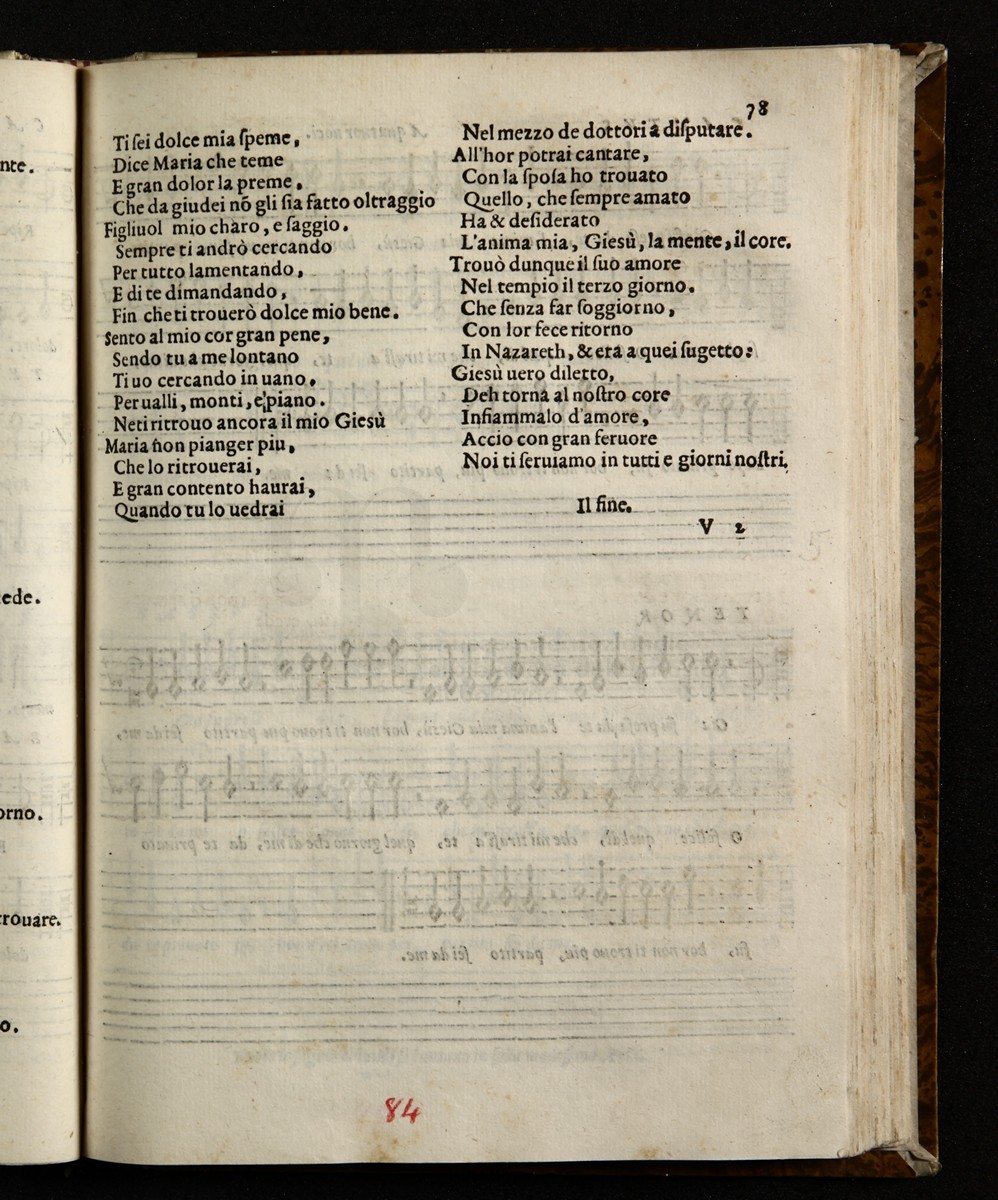 78
Ti sei dolce mia ſpeme,
Dice Maria che teme
E gran dolor la preme.
Che da giudei nõ gli ſia fatto oltraggio
Figliuol mio charo, e ſaggio.
Sempre ti andrò cercando
Per tutto lamentando,
E di te dimandando,
Fin che ti trouerò dolce mio bene.
Sento al mio cor gran pene,
Sendo tu a me lontano
Ti uo cercando in uano,
Per ualli, monti, e piano.
Ne ti ritrouo ancora il mio Gieſù
Maria non pianger piu,
Che lo ritrouerai,
E gran contento haurai,
Quando tu lo uedrai
Nel mezzo de dottori a diſputare.
All'hor potrai cantare,
Con la ſpoſa ho trouato
Quello, che ſempre amato
Ha & deſiderato
L'anima mia, Gieſù, la mente, il core.
Trouò dunque il ſuo amore
Nel tempio il terzo giorno.
Che ſenza far ſoggiorno,
Con lor fece ritorno
In Nazareth, & era a quei ſugetto:
Gieſù uero diletto,
Deh torna al noſtro core
Infiammalo d'amore,
Accio con gran feruore
Noi ti ſeruiamo in tutti e giorni noſtri.
Il fine.
V 2
nte.
ede.
orno.
rouare.
o.
84